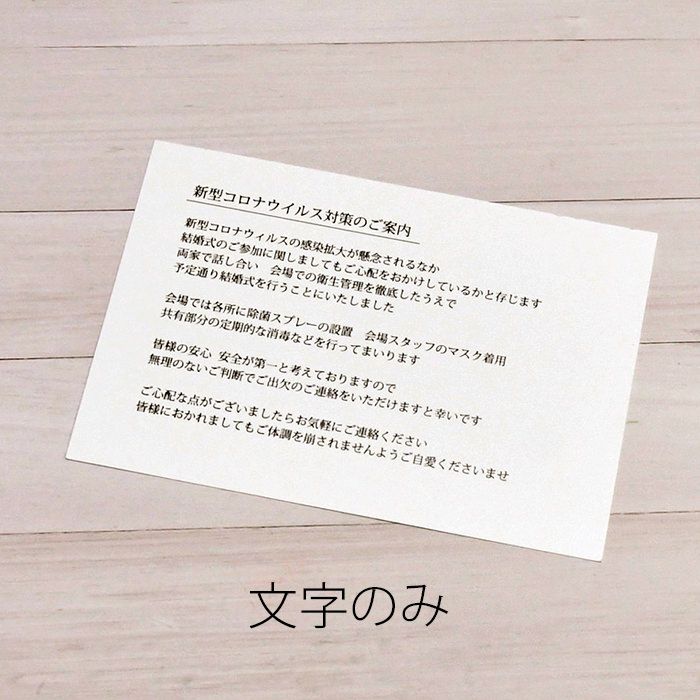 新型コロナウイルス対策のご案内
新型コロナウィルスの感染拡大が懸念されるなか
結婚式のご参加に関しましてもご心配をおかけしているかと存じます
両家で話し合い　会場での衛生管理を徹底したうえで
予定通り結婚式を行うことにいたしました
会場では各所に除菌スプレーの設置　会場スタッフのマスク着用
共有部分の定期的な消毒などを行ってまいります
皆様の安心 安全が第一と考えておりますので
無理のないご判断でご出欠のご連絡をいただけますと幸いです
ご心配な点がございましたらお気軽にご連絡ください
皆様におかれましてもご体調を崩されませんようご自愛くださいませ
文字のみ